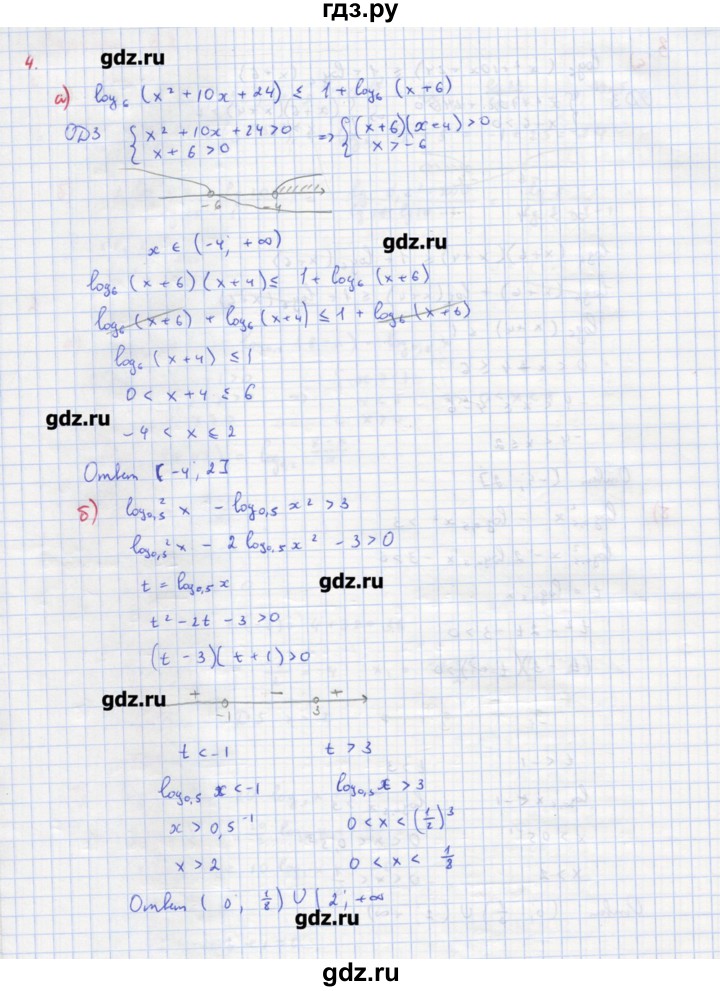 гдз.ру
gdz.ru
4.
а) log₆ (x² + 10x + 24) ≤ 1 + log₆ (x + 6)
ОДЗ { x² + 10x + 24 > 0 => { (x + 6)(x + 4) > 0
x + 6 > 0 x > -6
-6 -4
x ∈ (-4; +∞)
gdz.ru
log₆ (x + 6)(x + 4) ≤ 1 + log₆ (x + 6)
log₆ (x + 6) + log₆ (x + 4) ≤ 1 + log₆ (x + 6)
log₆ (x + 4) ≤ 1
0 < x + 4 ≤ 6
gdz.ru
-4 < x ≤ 2
Ответ (-4; 2]
б) log²₀,₅ x - log₀,₅ x² > 3
log²₀,₅ x - 2 log₀,₅ x² - 3 > 0
t = log₀,₅ x
gdz.ru
t² - 2t - 3 > 0
(t - 3)(t + 1) > 0
gdz.ru
+ - +
-1 3
t < -1 t > 3
log₀,₅ x < -1 log₀,₅ x > 3
x > 0,5⁻¹ 0 < x < (1/2)³
x > 2 0 < x < 1/8
Ответ (0; 1/8) ∪ (2; +∞
gdz.ru
gdz.ru